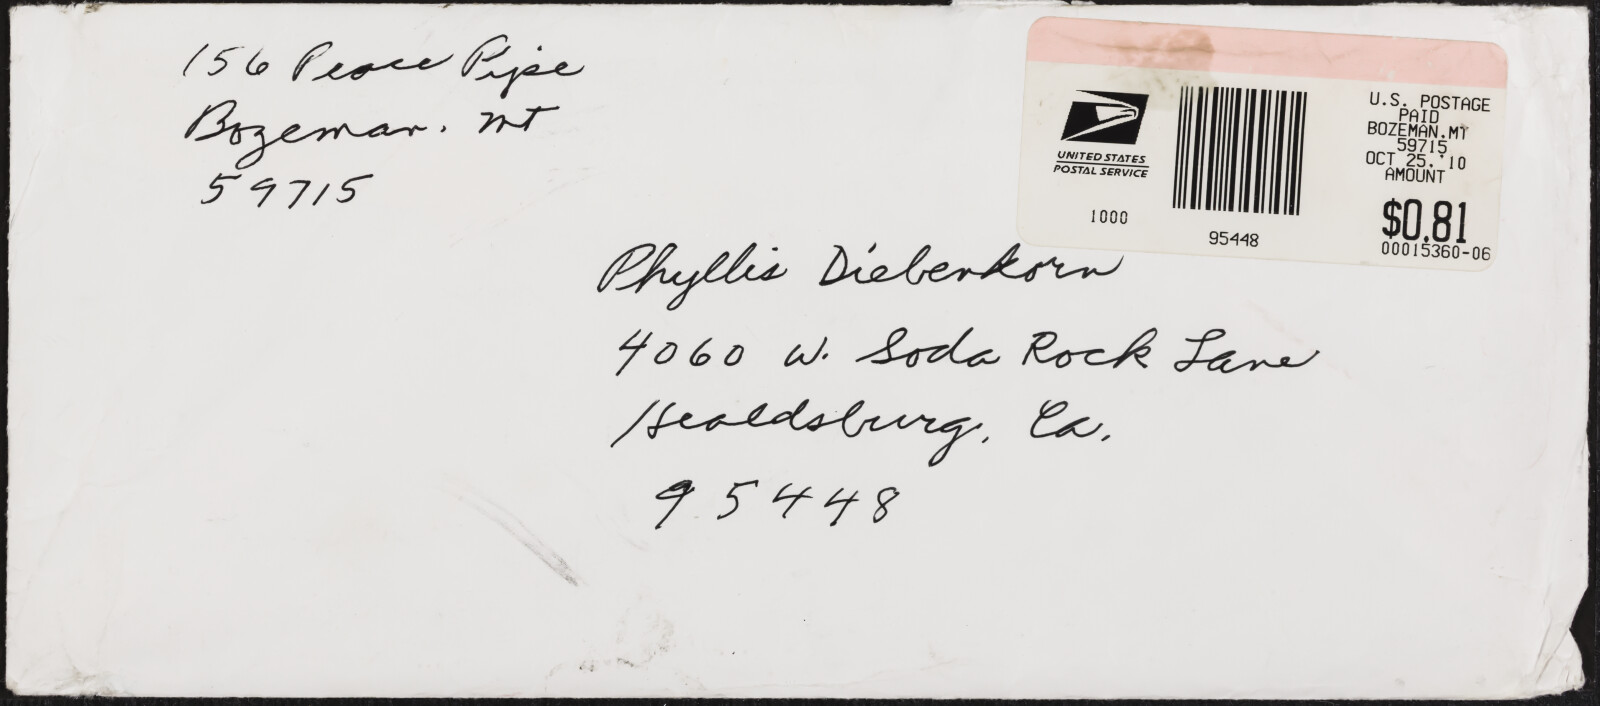 156 Peace Pipe
Bozeman. MT
59715
UNITED STATES
POSTAL SERVICE
1000
95448
U.S. POSTAGE
PAID
BOZEMAN.MT
59715
OCT 25.'10
AMOUNT
$0.81
00015360-06
Phyllis Diebenkorn
4060 W. Soda Rock Lane
Healdsburg, Ca.
95448